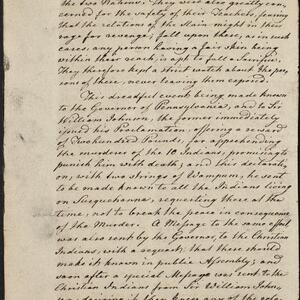 the two Nations. They were also greatly con-
cerned for the safety of their Teachers, fearing
that the relations of the Slain might in their
rage for revenge, fall upon them, as in such
cases, any person having a fair skin being
within their reach, is apt to fall a Sacrifice.
They therefore kept a strict watch about the per-
sons of them, never leaving them exposed.
This dreadful event being made known
to the Governor of Pennsylvania, and to Sir
William Johnson, the former immediately
issued his Proclamation, offering a reward
of Two hundred Pounds, for apprehending
the murderer of the Indians, promising to
punish him with death; and this declarati-
on, with two Strings of Wampum, he sent
to be made known to all the Indians living
on Susquehanna, requesting them at the
time, not to break the peace in consequence
of the Murder. A Message to the same effect
was also sent by the Governor to the Christian
Indians, with a request, that these should
make it known in public Assembly; and
soon after a special Message was sent to the
Christian Indians from Sir William John-